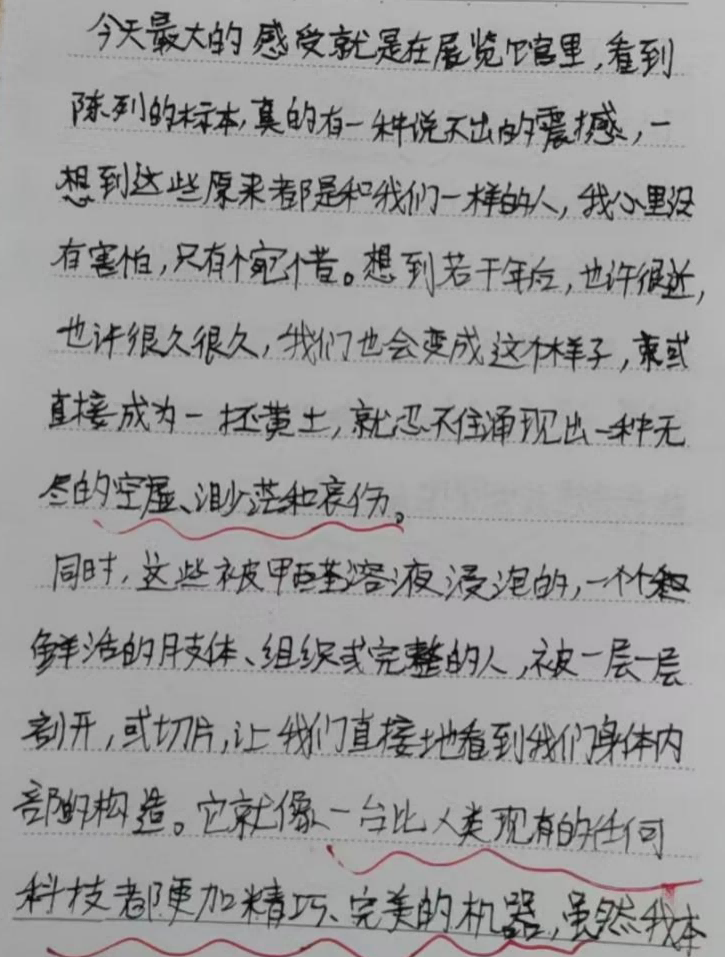 今天最大的感受就是在展览馆里,看到
陈列的标本,真的有一种说不出的震撼,一
想到这些原来都是和我们一样的人,我心里没
有害怕,只有惋惜。想到若干年后,也许很近,
也许很久很久,我们也会变成这个样子,或
直接成为一抔黄土,就忍不住涌现出一种无
尽的空虚、渺茫和哀伤。
同时,这些被甲醛溶液浸泡的,一个个
鲜活的肢体、组织或完整的人,被一层一层
剖开,或切片,让我们直接地看到我们身体内
部的构造。它就像一台比人类现有的任何
科技都更加精巧、完美的机器,虽然我本